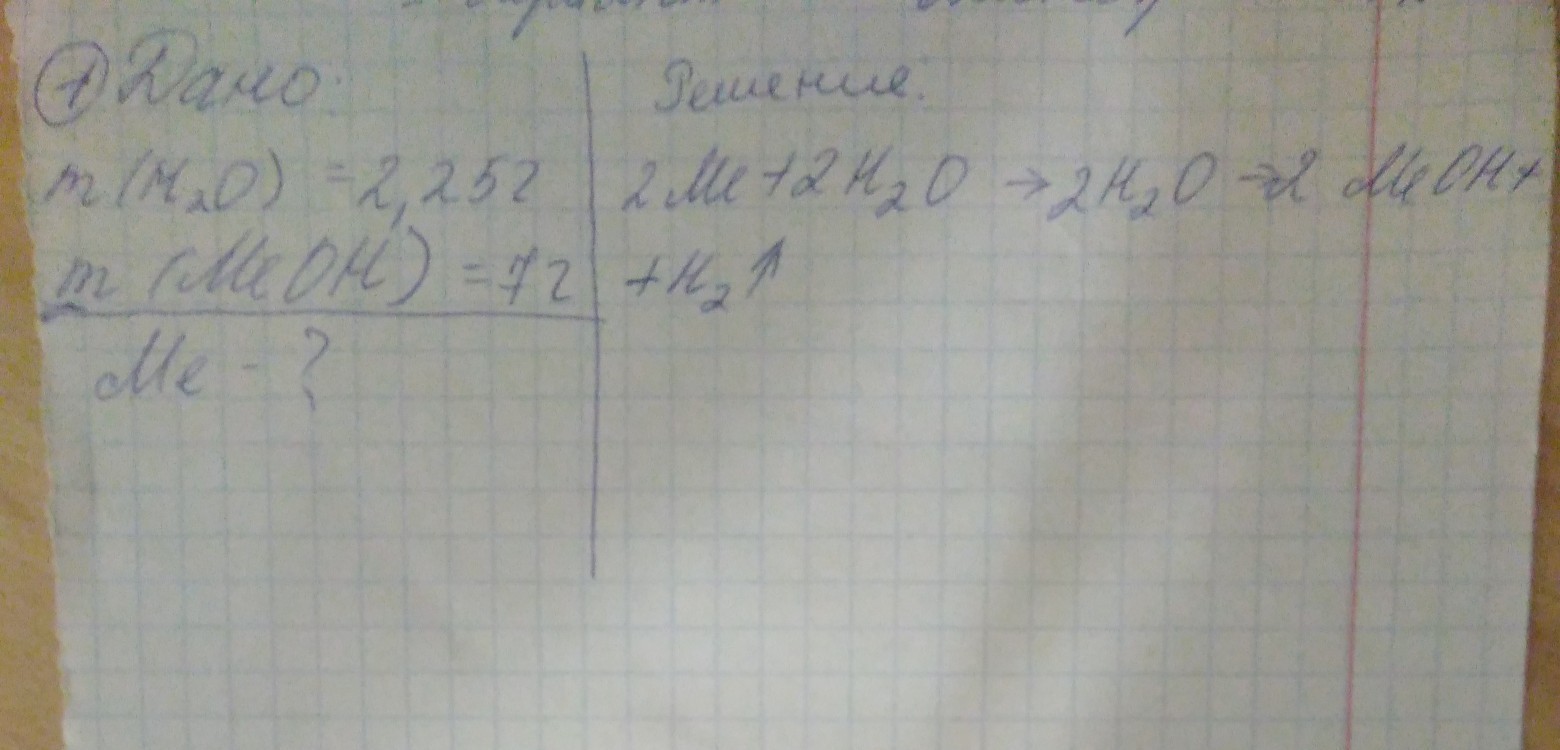 1 Дано:
m (H₂O) = 2,25г
m (MeOH) = 7г
Me - ?
Решение.
2Me + 2H₂O → 2H₂O → 2 MeOH +
+ H₂↑